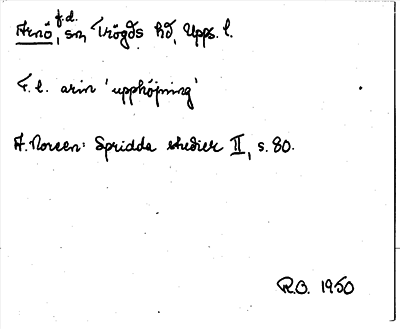 Arnö, f.d. sn, Trögds hd, Upps. l.
F.l. arin 'upphöjning'
A. Noreen: Spridda studier II, s. 80.
R.O. 1950